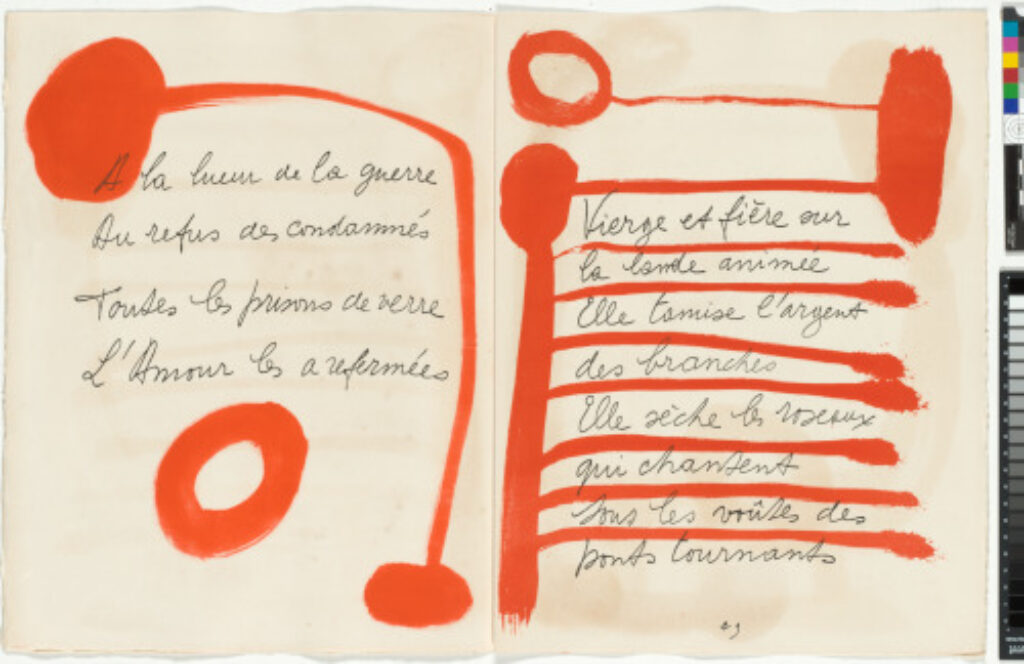 A la lueur de la guerre
Au refus des condamnés
Toutes les prisons de verre
L'Amour les a refermées
Vierge et fière sur
la lande animée
Elle tamise l'argent
des branches
Elle sèche les roseaux
qui chantent
sous les voûtes des
ponts tournants